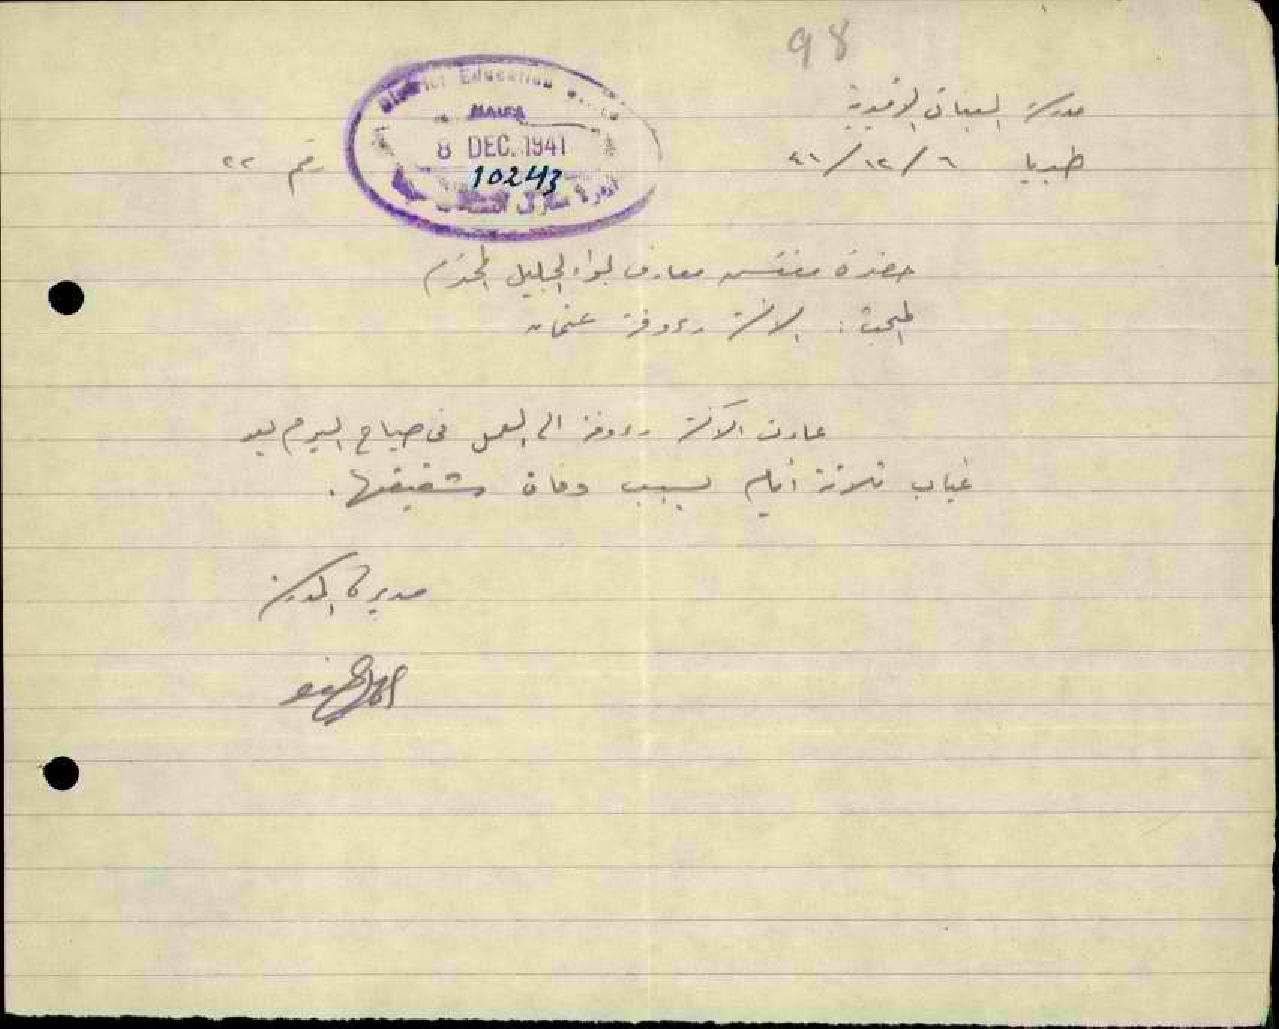 98
مدرسة البنات الاميرية
طبريا ٦/١٢/٤١
رقم ٢٢
District Education Office
HAIFA
8 DEC. 1941
10243
ادارة معارف
حضرة مفتش معارف لواء الجليل المحترم
المبحث : الآنسة رؤوفة عثمان
عادت الآنسة رؤوفة الى العمل في صباح اليوم بعد
غياب ثلاثة أيام بسبب وفاة شقيقتها .
مديرة المدرسة